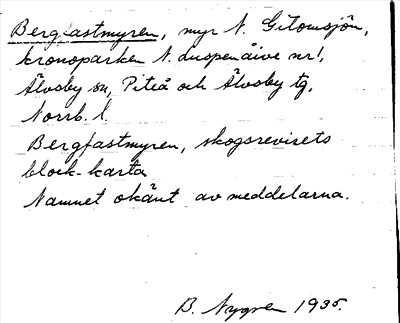 Bergfastmyren, myr N. Gitomsjön,
kronoparken N. Suspenäive nr 1,
Älvsby sn, Piteå och Älvsby tg,
Norrb. l.
Bergfastmyren, skogsrevirets
block-karta
Namnet okänt av meddelarna.
B. Nygren 1935.